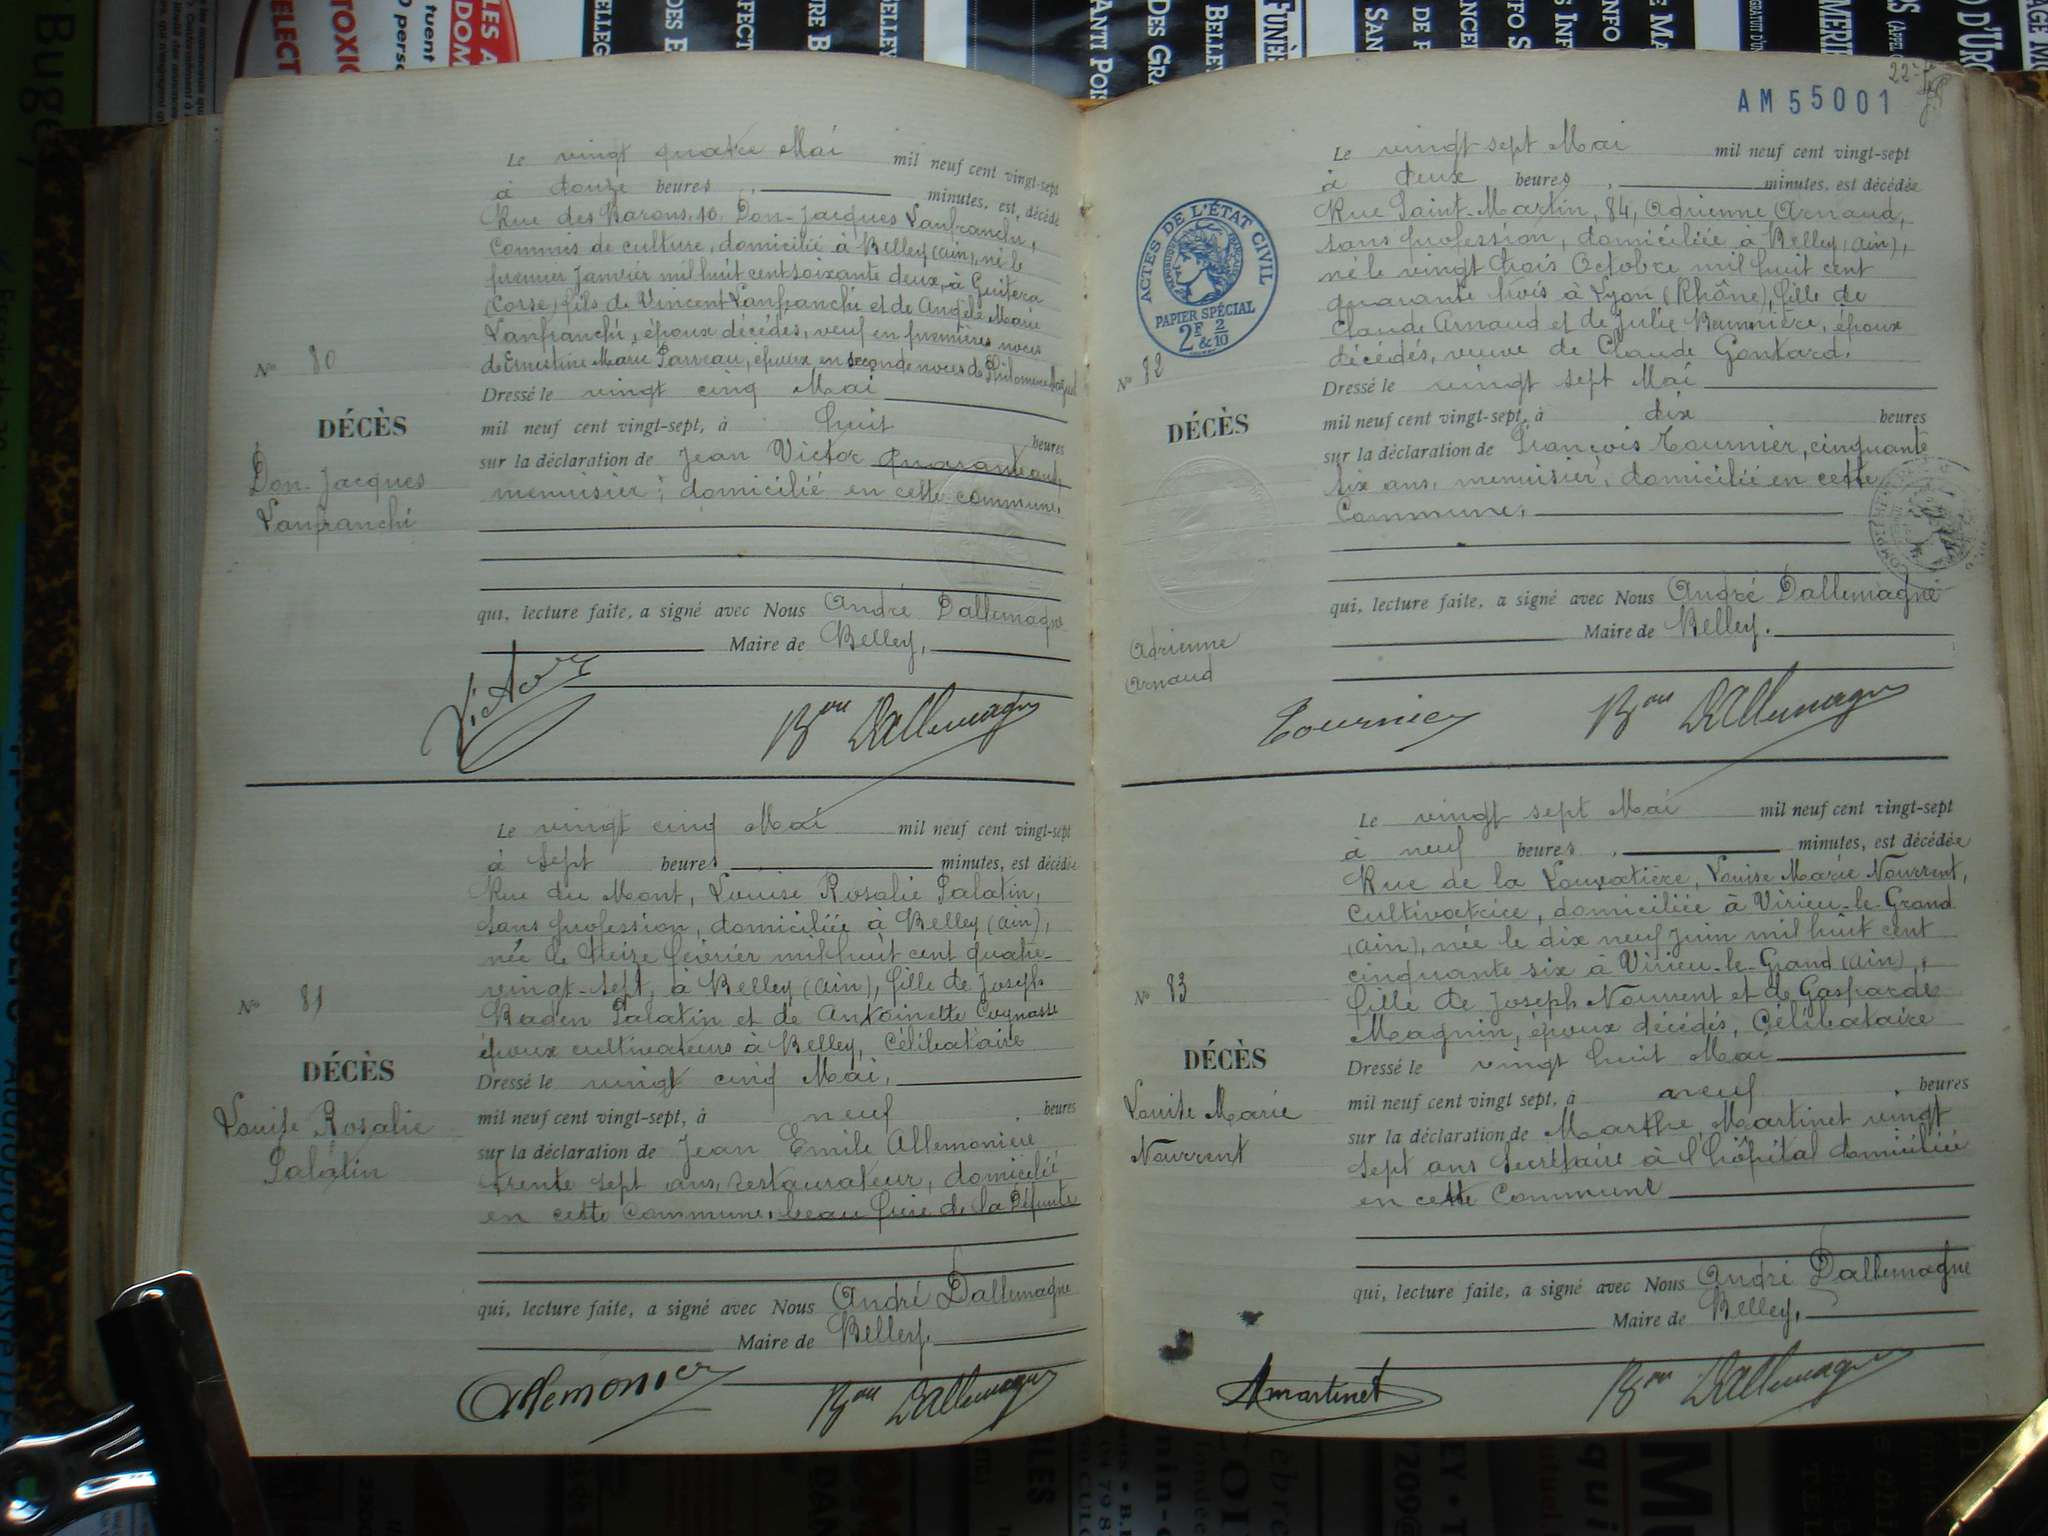 Le vingt quatre Mai mil neuf cent vingt-sept
à douze heures, minutes, est décédé
Rue des Barons, 10, Don-Jacques Lanfranchi,
Commis de culture, domicilié à Belley (Ain), né le
premier Janvier mil huit cent soixante deux, à Guitera
(Corse) fils de Vincent Lanfranchi et de Angèle Marie
Lanfranchi, époux décédés, veuf en premières noces
de Ernestine Marie, époux en seconde noces de Philomène
No 80
Dressé le vingt cinq Mai
DÉCÈS
mil neuf cent vingt-sept, à huit heures
sur la déclaration de Jean Victor quarante ans
Don-Jacques
Lanfranchi
menuisier, domicilié en cette commune,
qui, lecture faite, a signé avec Nous André Dallemagne
Maire de Belley,
Victor
Bon Dallemagne
Le vingt cinq Mai mil neuf cent vingt-sept
à sept heures minutes, est décédée
Rue du Mont, Louise Rosalie Palatin,
sans profession, domiciliée à Belley (Ain),
née le treize février mil huit cent quatre-
vingt-sept, à Belley (Ain), fille de Joseph
No 81
Baden Palatin et de Antoinette Cugnasse
époux cultivateurs a Belley, Célibataire
DÉCÈS
Dressé le vingt cinq Mai,
mil neuf cent vingt-sept, à neuf heures
Louise Rosalie
Palatin
sur la déclaration de Jean Emile Allemonière
trente sept ans, restaurateur, domicilié
en cette commune, beau frère de la Défunte
qui, lecture faite, a signé avec Nous André Dallemagne
Maire de Belley.
Allemonier
Bon Dallemagne
AM55001
Le vingt sept Mai mil neuf cent vingt-sept
à deux heures, minutes, est décédée
Rue Saint-Martin, 84, Adrienne Arnaud,
sans profession, domiciliée à Belley (Ain),
né le vingt trois Octobre mil huit cent
quarante trois à Lyon (Rhône), fille de
Claude Arnaud et de Julie, époux
décédés, veuve de Claude Gontard.
ACTES DE L'ÉTAT CIVIL
PAPIER SPÉCIAL
2F & 2/10
No 82
Dressé le vingt sept Mai
DÉCÈS
mil neuf cent vingt-sept, à dix heures
sur la déclaration de François Tournier, cinquante
six ans, menuisier, domicilié en cette
Commune,
qui, lecture faite, a signé avec Nous André Dallemagne
Maire de Belley.
Adrienne
Arnaud
Tournier
Bon Dallemagne
Le vingt sept Mai mil neuf cent vingt-sept
à neuf heures, minutes, est décédée
Rue de la Louvatière, Louise Marie Nourrent,
Cultivatrice, domiciliée à Virieu-le-Grand
(Ain), née le dix neuf Juin mil huit cent
cinquante six à Virieu-le-Grand (Ain),
No 83
fille de Joseph Nourrent et de Gasparde
Magnin, époux décédés, Célibataire
DÉCÈS
Dressé le vingt huit Mai
mil neuf cent vingt sept, à neuf heures
Louise Marie
Nourrent
sur la déclaration de Marthe Martinet vingt
sept ans Secrétaire à l'hôpital domiciliée
en cette Commune
qui, lecture faite, a signé avec Nous André Dallemagne
Maire de Belley,
Martinet
Bon Dallemagne